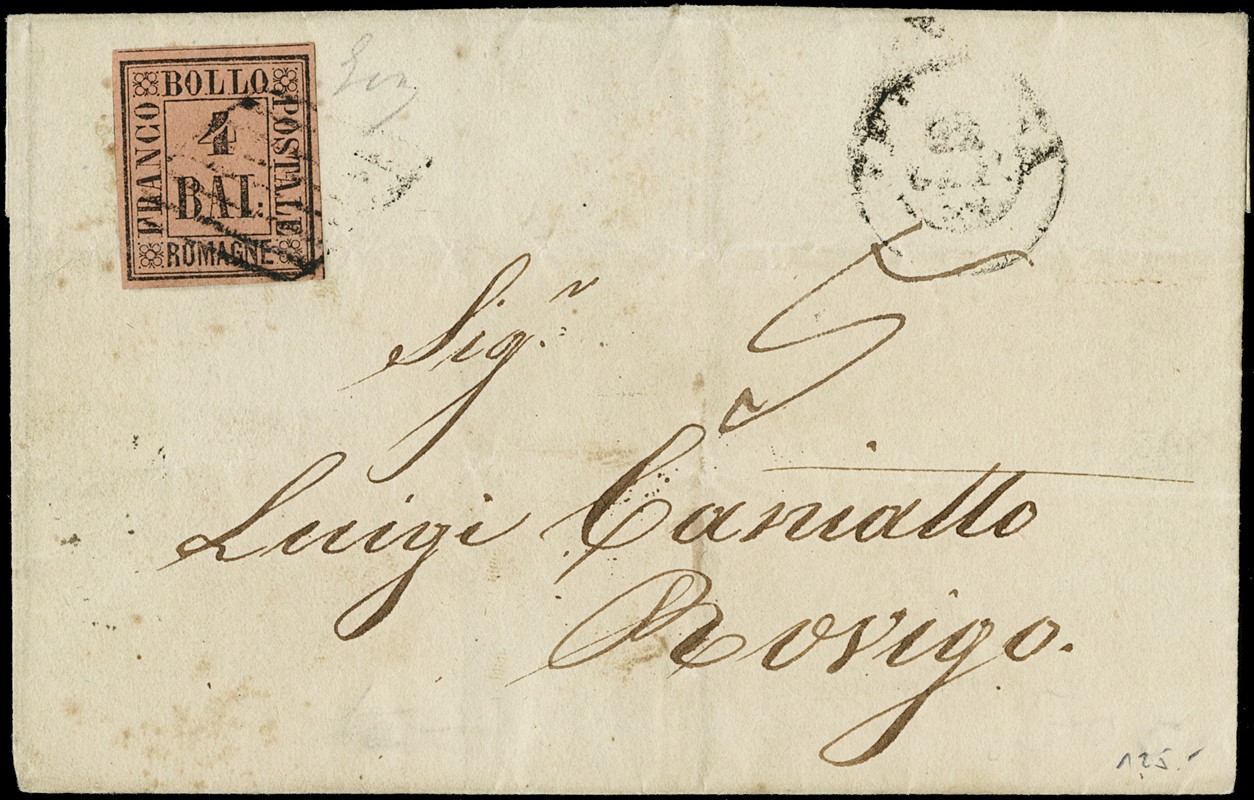 BOLLO
FRANCO
4
BAI
POSTALE
ROMAGNE
5
Sig.r
Luigi Caniatto
Rovigo.
125.-